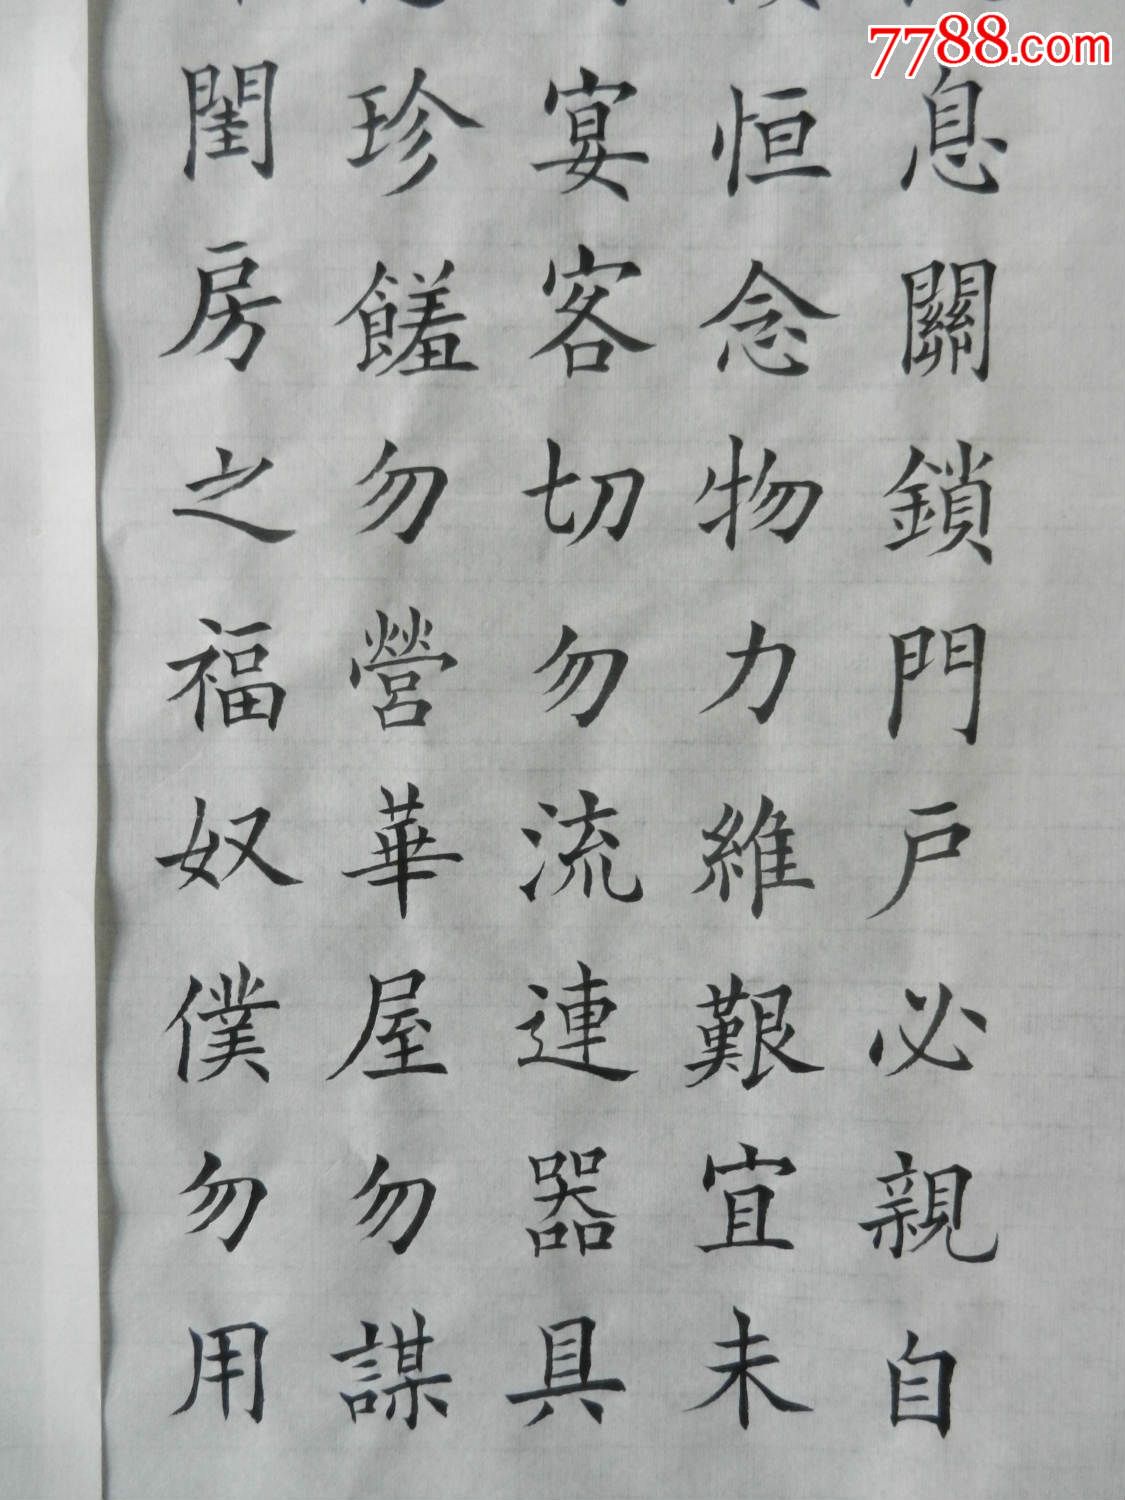 7788.com
息關鎖門戶必親自
恒念物力維艱宜未
宴客切勿流連器具
珍饈勿營華屋勿謀
閨房之福奴僕勿用